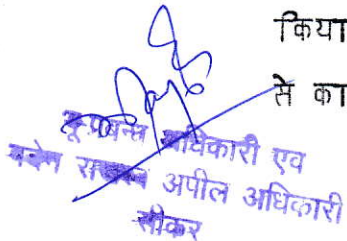 किया
से का
भू प्रबन्ध अधिकारी एव
पदेन राजस्व अपील अधिकारी
सीकर